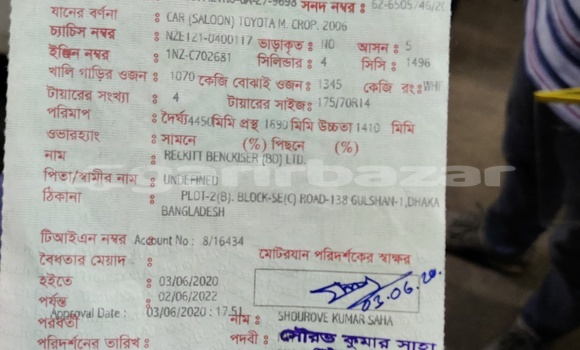 সনদ নম্বর : 62-6505746/20
যানের বর্ণনা : CAR (SALOON) TOYOTA M. CROP. 2006
চ্যাচিস নম্বর : NZE121-0400117 ভাড়াকৃত : NO আসন : 5
ইঞ্জিন নম্বর : 1NZ-C702681 সিলিন্ডার : 4 সিসি : 1496
খালি গাড়ির ওজন : 1070 কেজি বোঝাই ওজন : 1345 কেজি রং : WHI
টায়ারের সংখ্যা : 4 টায়ারের সাইজ : 175/70R14
পরিমাপ : দৈর্ঘ্য 4450 মিমি প্রস্থ 1690 মিমি উচ্চতা 1410 মিমি
ওভারহ্যাং : সামনে (%) পিছনে (%)
নাম : RECKITT BENCKISER (BD) LTD.
পিতা/স্বামীর নাম : UNDEFINED
ঠিকানা : PLOT-2(B). BLOCK-SE(C) ROAD-138 GULSHAN-1,DHAKA
BANGLADESH
টিআইএন নম্বর Account No : 8/16434
বৈধতার মেয়াদ : মোটরযান পরিদর্শকের স্বাক্ষর
হইতে : 03/06/2020
03.06.20
পর্যন্ত : 02/06/2022
Approval Date : 03/06/2020 : 17:51
পরবর্তী নাম : SHOUROVE KUMAR SAHA
পরিদর্শনের তারিখ : পদবী : সৌরভ কুমার সাহা
garirbazar